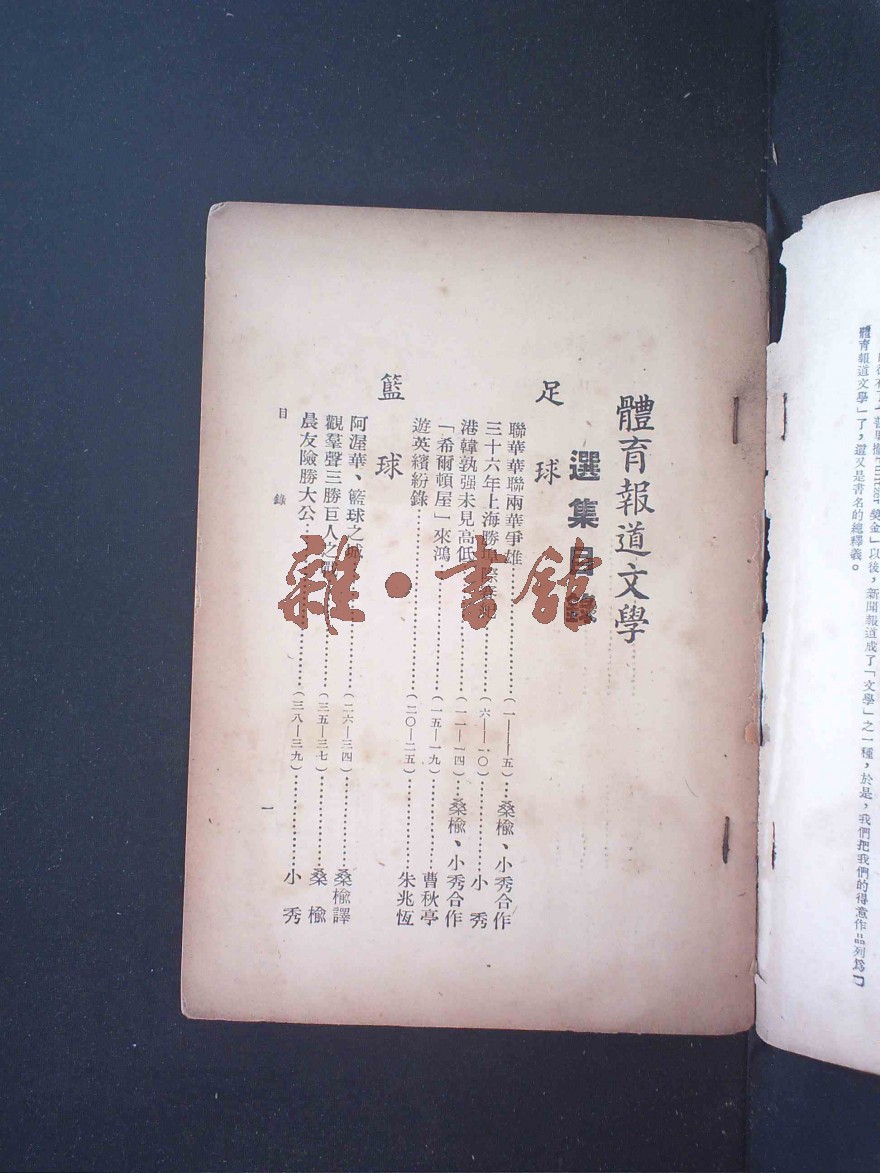 體育報道文學」了，還又是書名的總釋義。
獎金」以後，新聞報道成了「文學」之一種，於是，我們把我們的得意作品列爲「
體育報道文學
選集目錄
足球
聯華華聯兩華爭雄……(一—五)……桑榆、小秀合作
三十六年上海勝……(六—一〇)……小秀
港韓孰强未見高低……(一一—一四)……桑榆、小秀合作
「希爾頓屋」來鴻……(一五—一九)……曹秋亭
遊英繽紛錄……(二〇—二五)……朱兆恆
籃球
阿渥華、籃球之城……(二六—三四)……桑榆譯
觀羣聲三勝巨人之戰……(三五—三七)……桑榆
晨友險勝大公……(三八—三九)……小秀
目錄
一
雜·書館